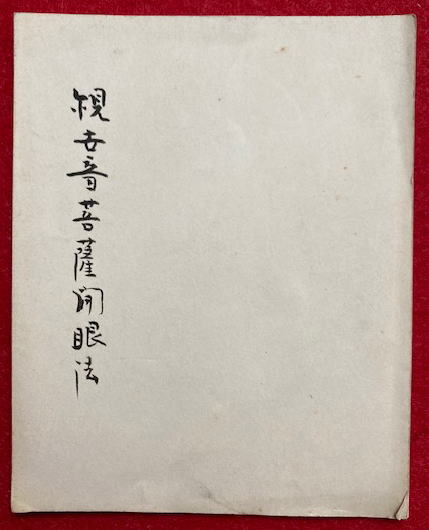 観世音菩薩開眼法